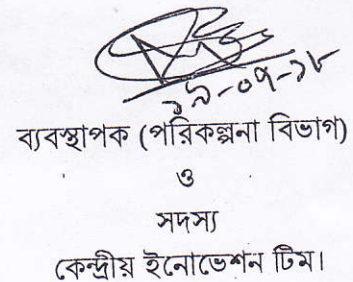 ১৯-০৭-১৮
ব্যবস্থাপক (পরিকল্পনা বিভাগ)
ও
সদস্য
কেন্দ্রীয় ইনোভেশন টিম।